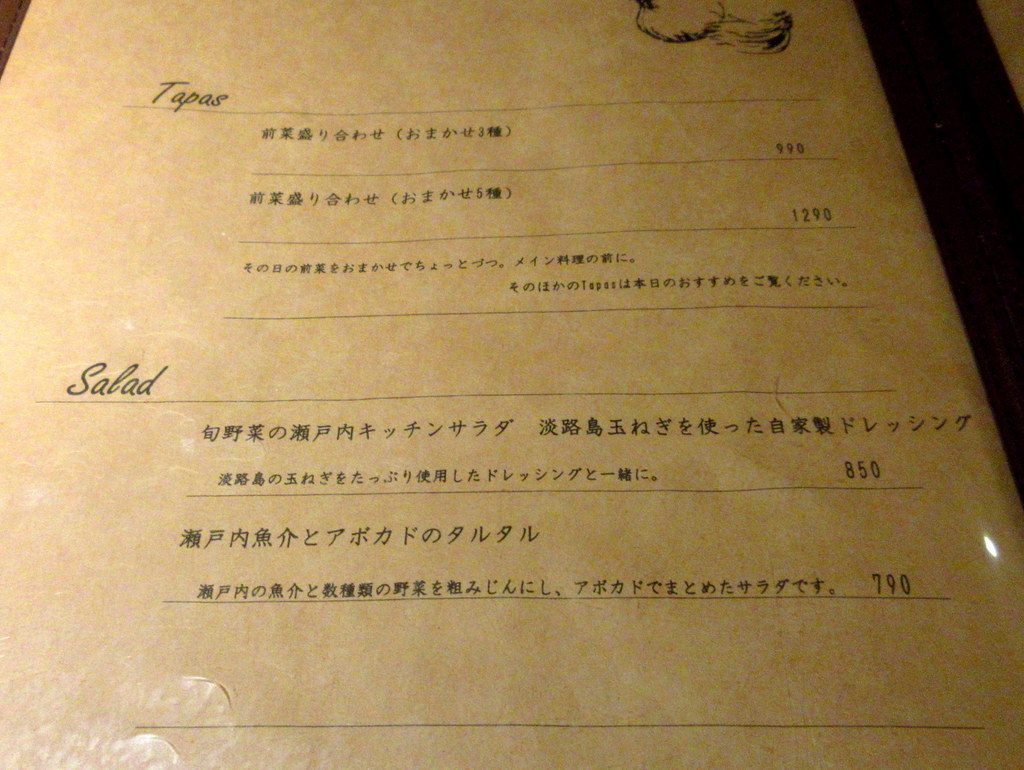 Tapas
前菜盛り合わせ（おまかせ3種）
990
前菜盛り合わせ（おまかせ5種）
1290
その日の前菜をおまかせでちょっとづつ。メイン料理の前に。
そのほかのTapasは本日のおすすめをご覧ください。
Salad
旬野菜の瀬戸内キッチンサラダ　淡路島玉ねぎを使った自家製ドレッシング
淡路島の玉ねぎをたっぷり使用したドレッシングと一緒に。 850
瀬戸内魚介とアボカドのタルタル
瀬戸内の魚介と数種類の野菜を粗みじんにし、アボカドでまとめたサラダです。 790